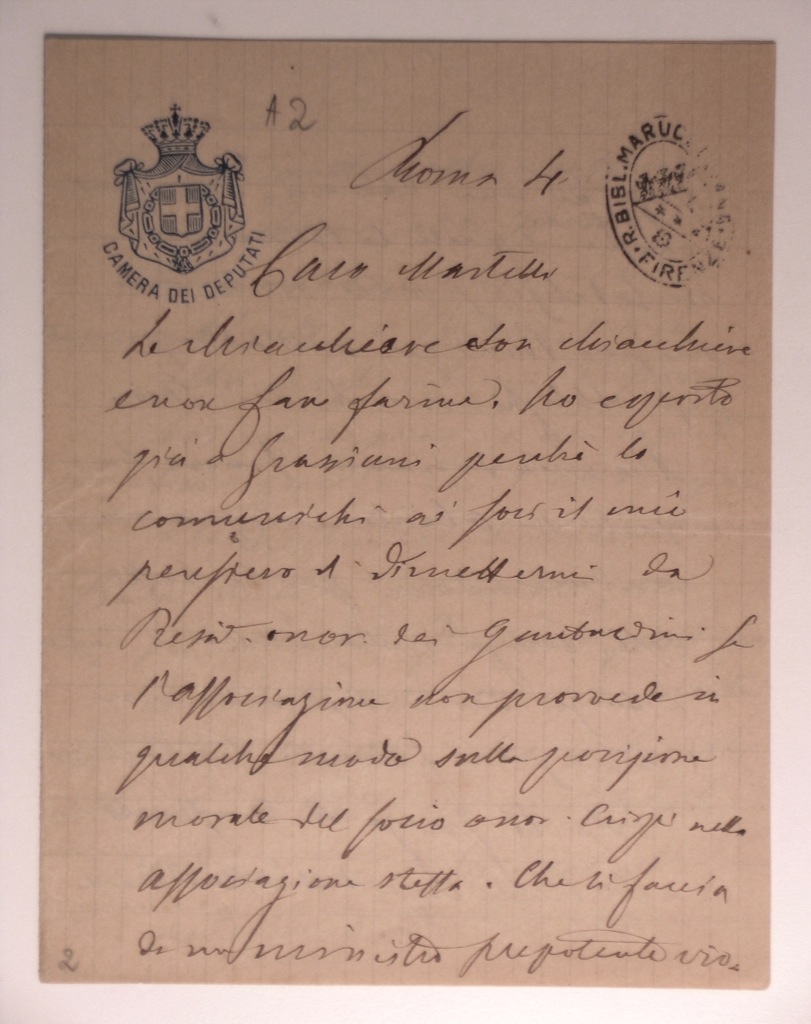 A2
CAMERA DEI DEPUTATI
R. BIBL. MARUC
FIRENZE
Roma 4
Caro Martelli
Le chiacchiere son chiacchiere
e non fan farina. Ho esposto
già a Graziani perchè lo
comunichi ai soci il mio
pensiero di dimettermi da
Presid. onor. dei Garibaldini se
l'associazione non provvede in
qualche modo sulla posizione
morale del socio onor. Crispi nella
associazione stessa. Che si faccia
di un ministro prepotente vio-
2